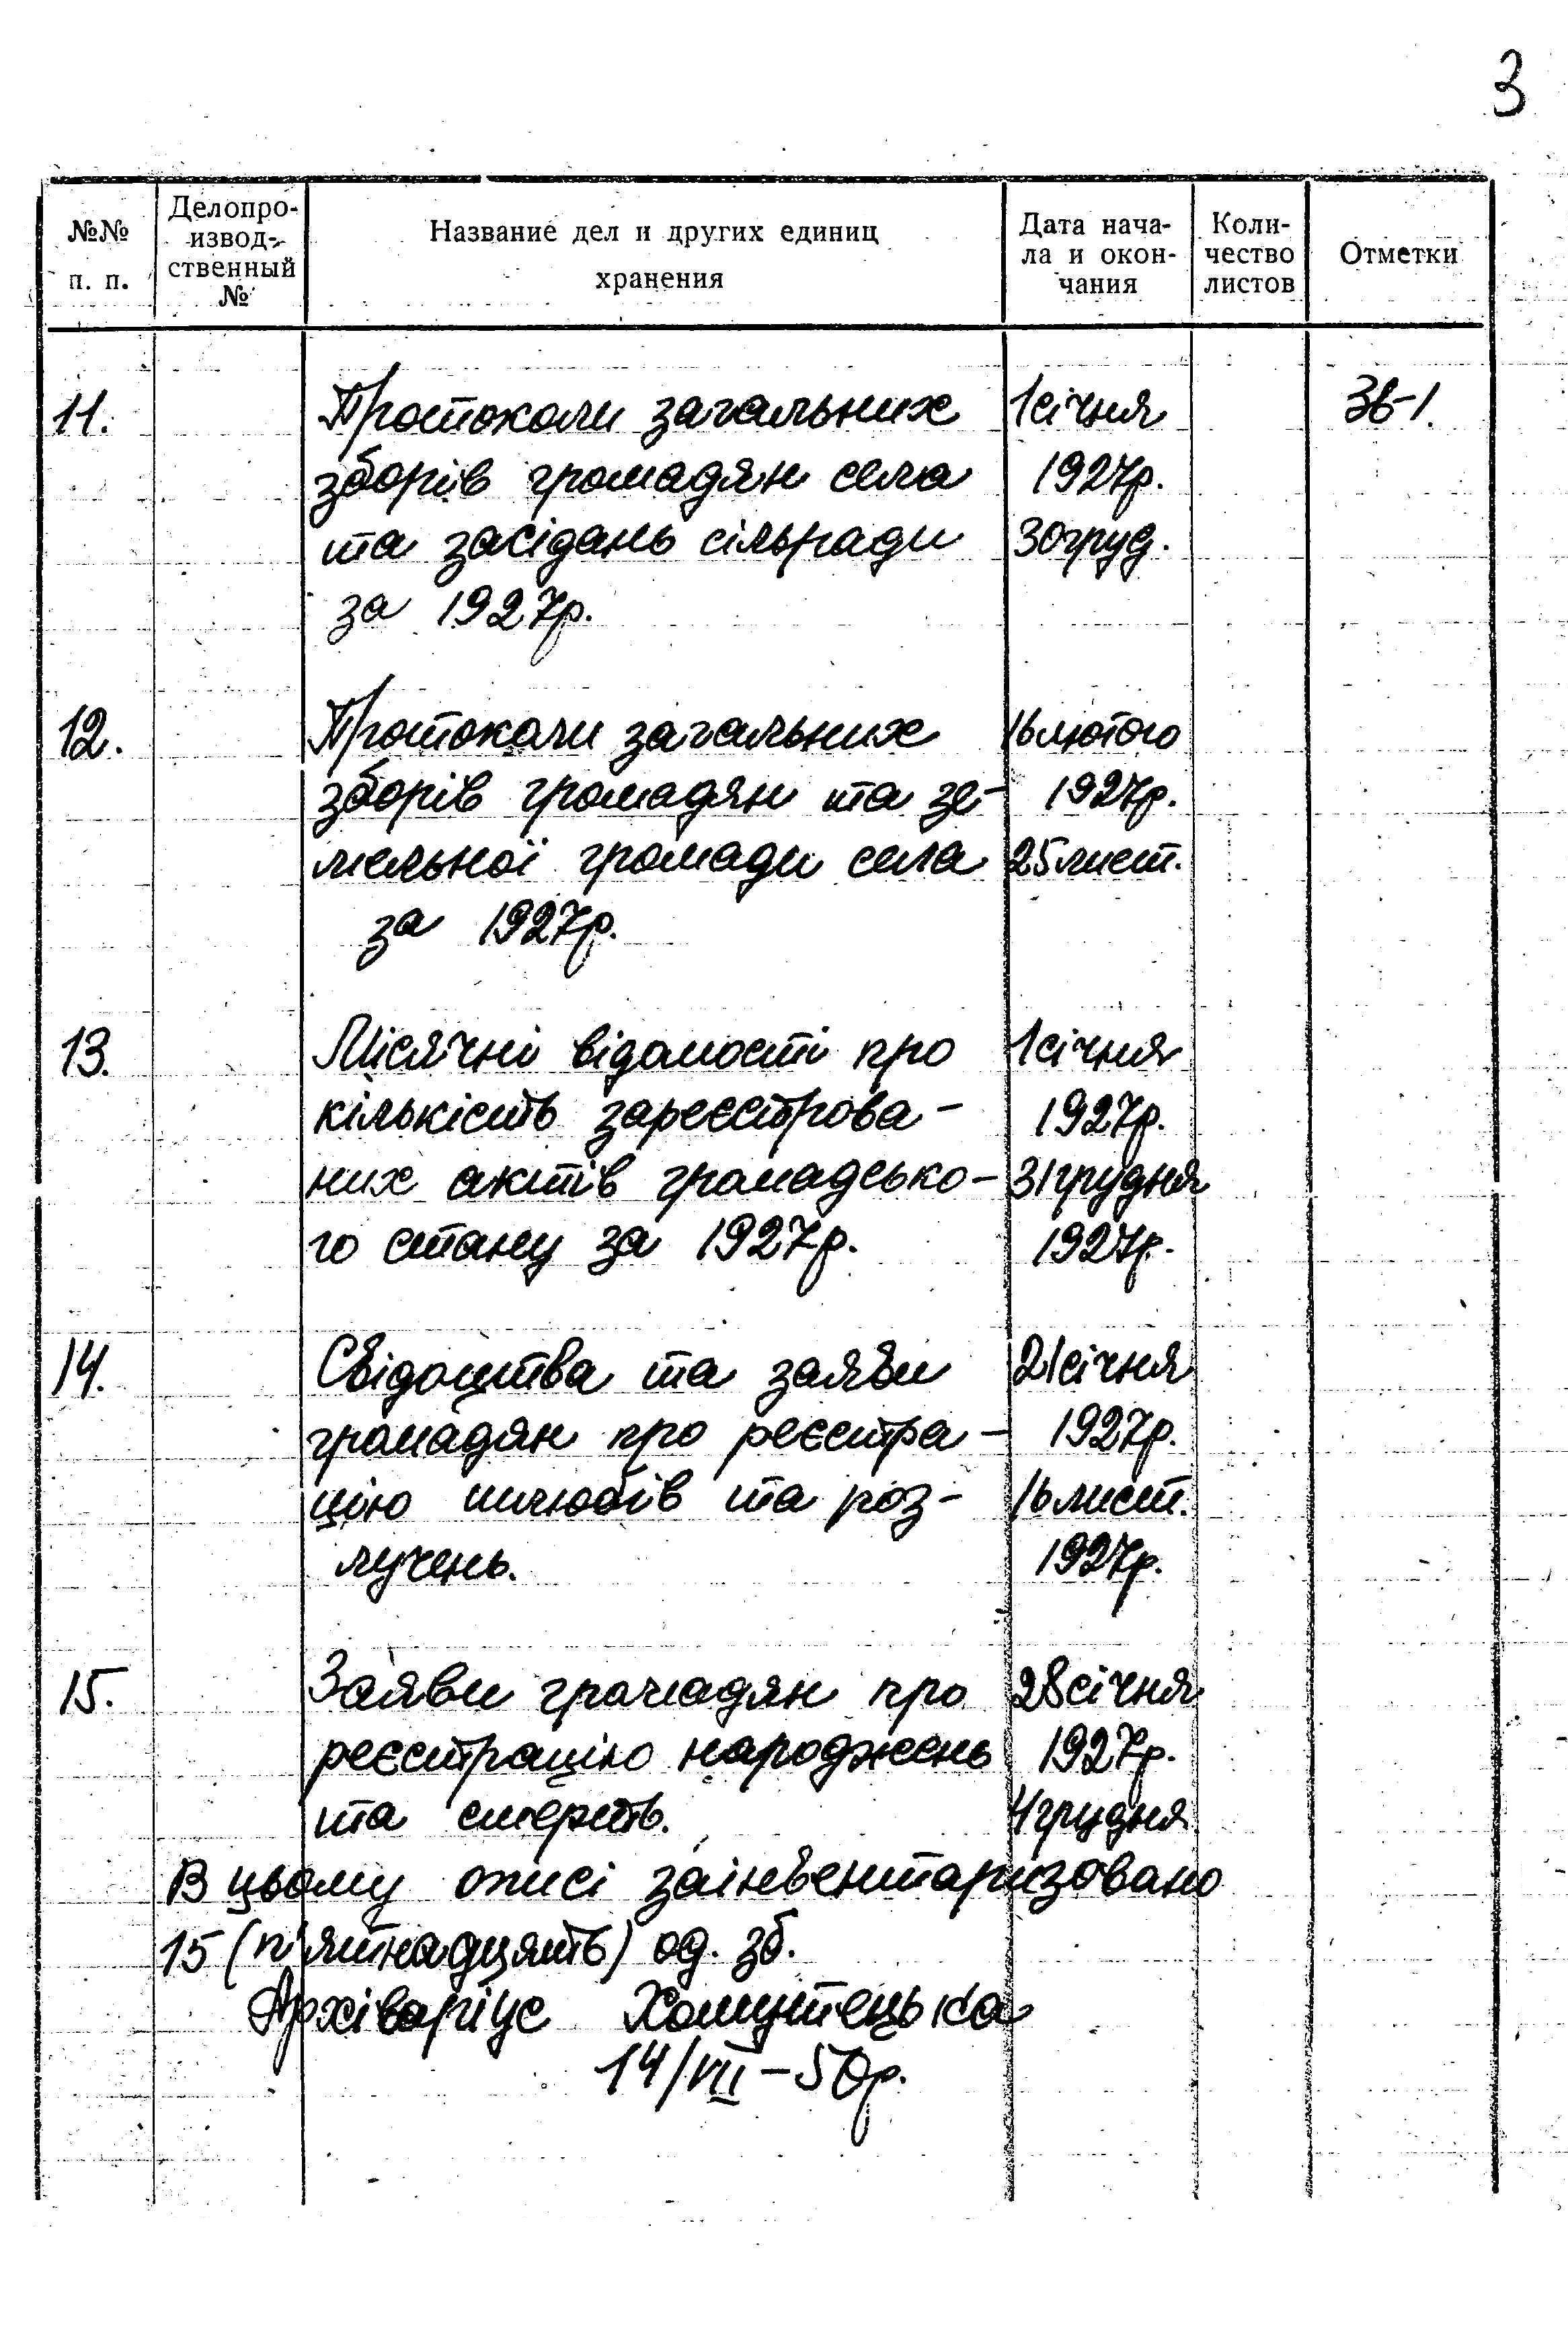 3
№№ п. п.
Делопро-
извод-
ственный
№
Название дел и других единиц
хранения
Дата нача-
ла и окон-
чания
Коли-
чество
листов
Отметки
11. Протоколи загальних 1 січня
зборів громадян села 1927р.
та засідань сільради 30 груд.
за 1927р.
12. Протоколи загальних 16 лютого
зборів громадян та зе- 1927р.
мельної громади села 25 лист.
за 1927р.
13. Місячні відомості про 1 січня
кількість зареєстрова- 1927р.
них актів громадсько- 31 грудня
го стану за 1927р. 1927р.
14. Свідоцтва та заяви 21 січня
громадян про реєстра- 1927р.
цію шлюбів та роз- 16 лист.
лучень. 1927р.
15. Заяви громадян про 28 січня
реєстрацію народжень 1927р.
та смерть. 4 грудня
В цьому описі заінвентаризовано
15 (п'ятнадцять) од. зб.
Архіваріус Хомутецька
14/VII – 50р.